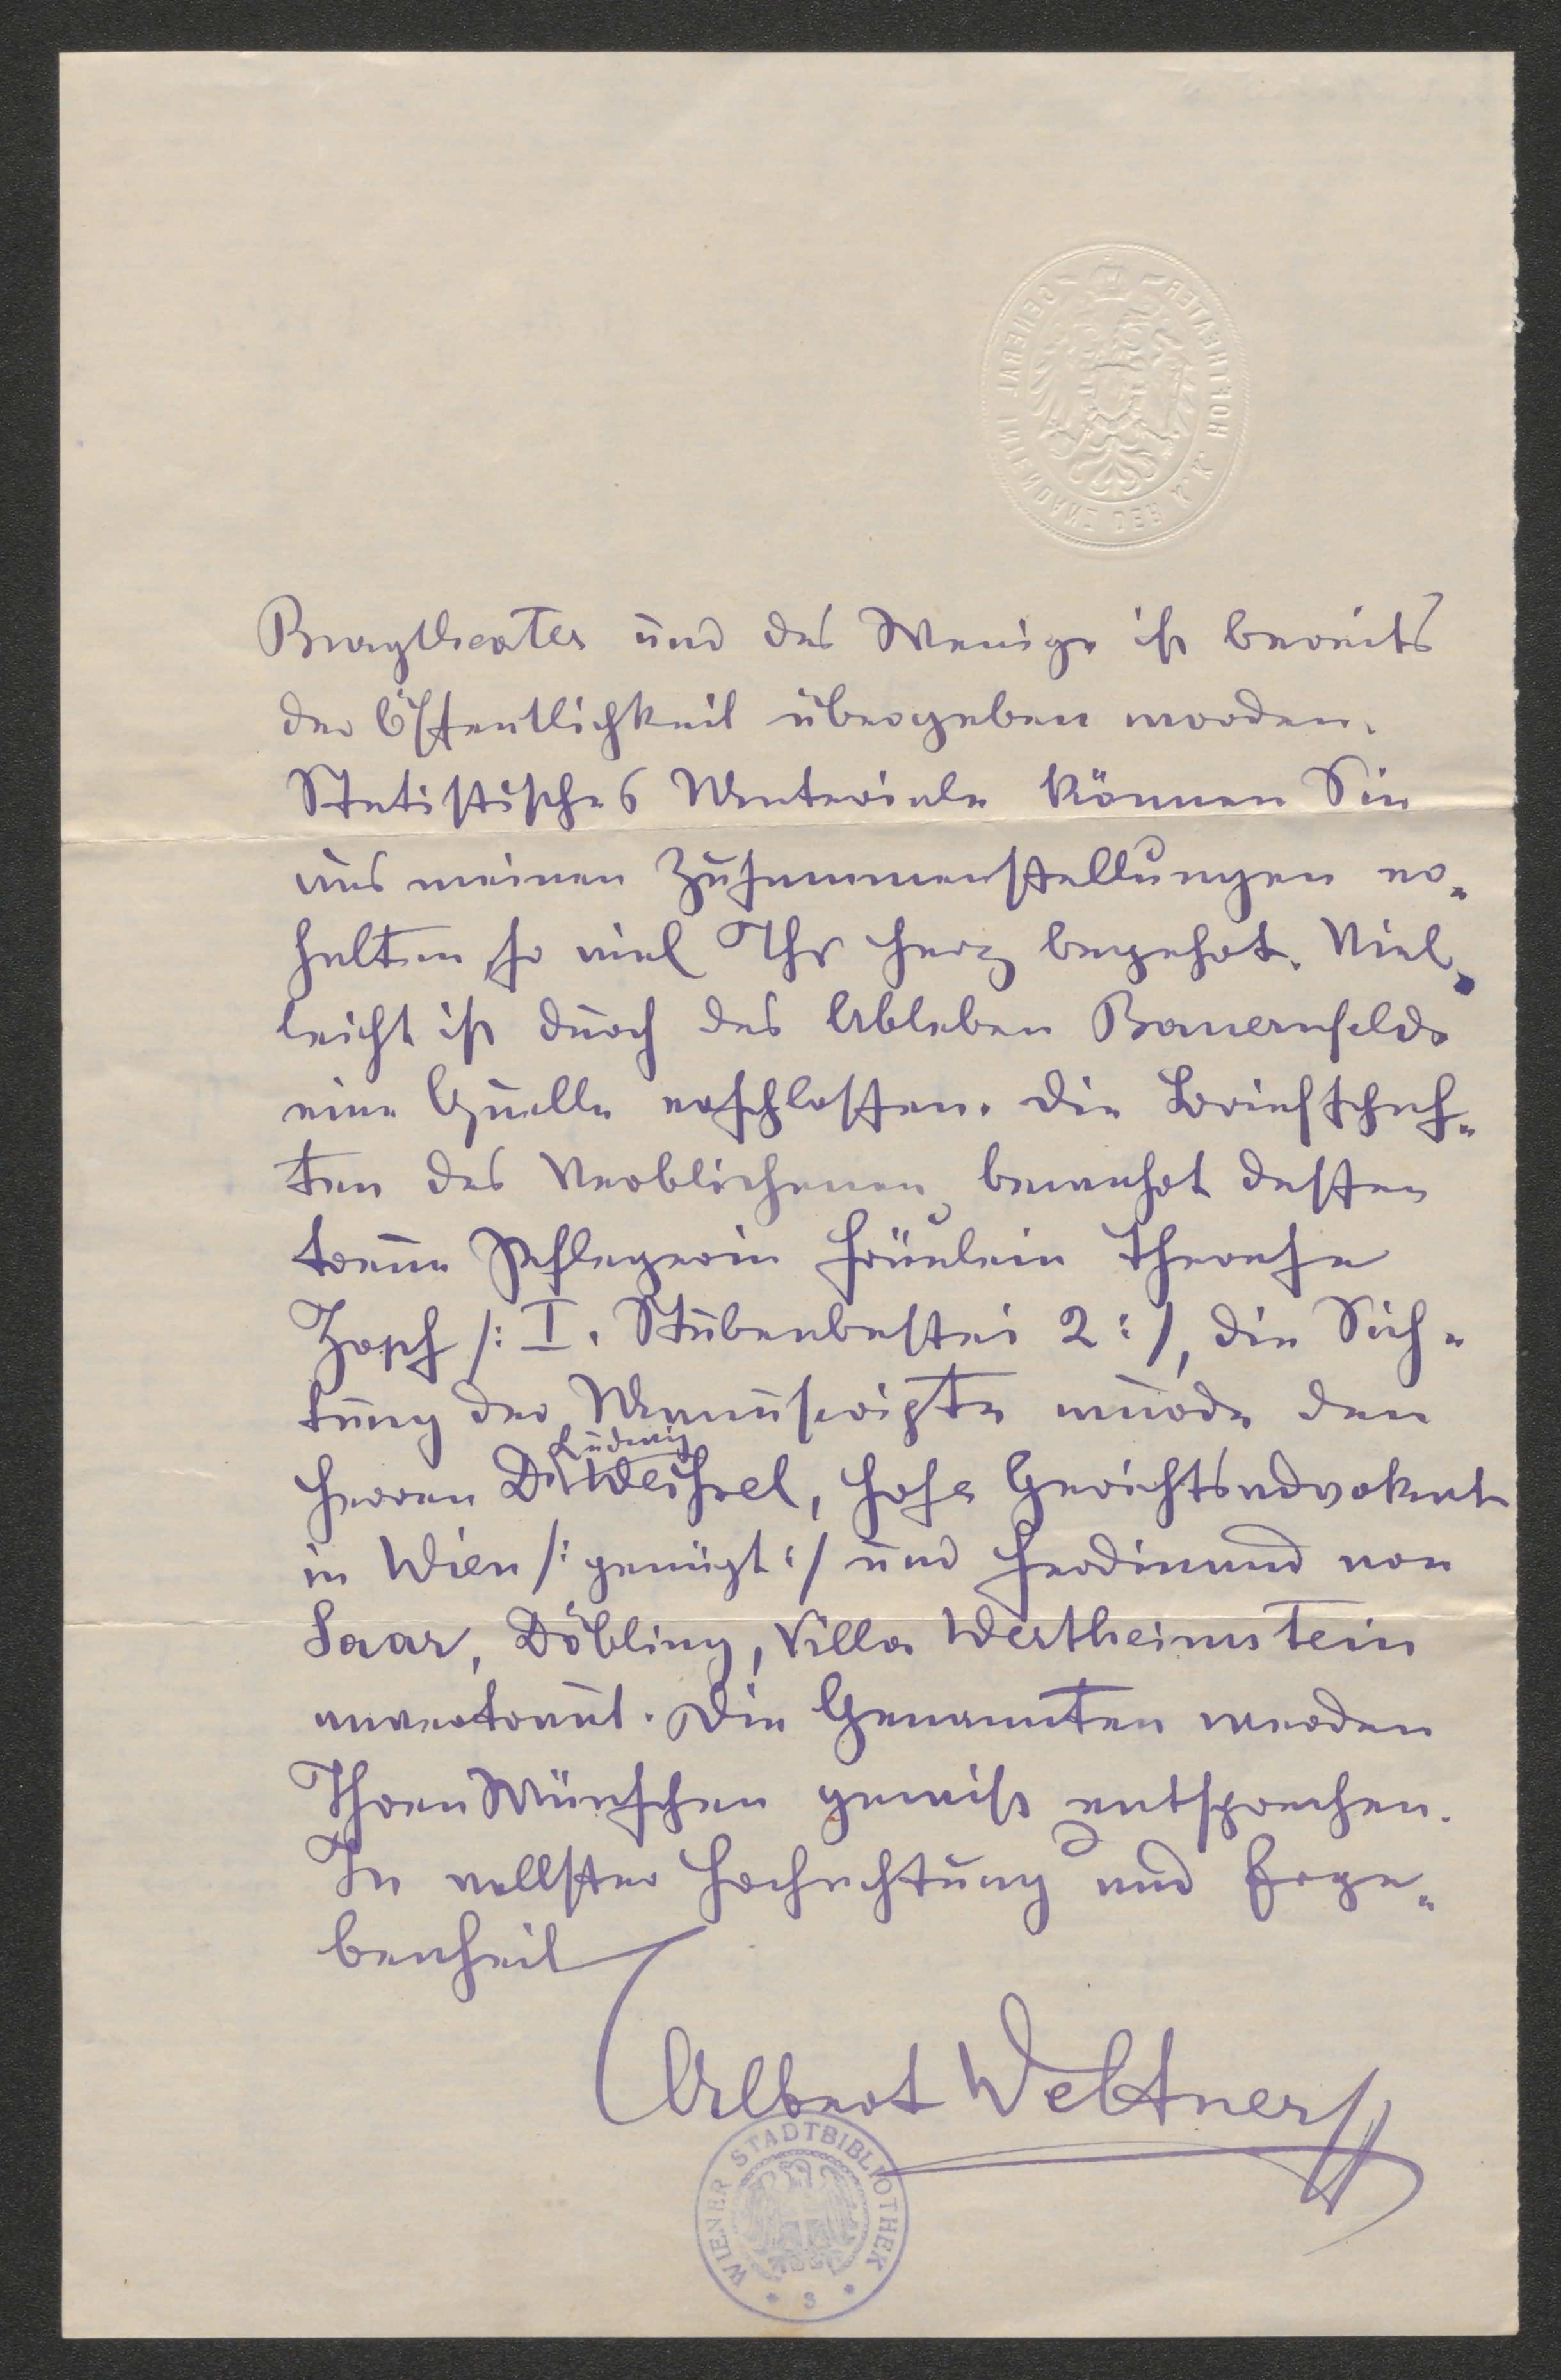 GENERAL INTENDANZ DER K. K. HOFTHEATER
Burgtheater und das Wenige ist bereits
der Öffentlichkeit übergeben worden.
Statistisches Materiale können Sie
aus meinen Zusammenstellungen er-
halten so viel Ihr Herz begehrt. Viel-
leicht ist durch das Ableben Bauernfelds
eine Quelle erschlossen. Die Briefschaf-
ten des Verblichenen bewahrt dessen
treue Pflegerin Fräulein Therese
Zopf /: I. Stubenbastei 2 :/, die Sich-
tung der Manuscripte wurde den
Ludwig
Herren Dr Weihsel, Hof & Gerichtsadvokat
in Wien /: genügt :/ und Ferdinand von
Saar, Döbling, Villa Wertheimstein
anvertraut. Die Genannten werden
Ihren Wünschen gewiß entsprechen.
In vollster Hochachtung und Erge-
benheit
Albert Weltner
WIENER STADTBIBLIOTHEK
* 3 *